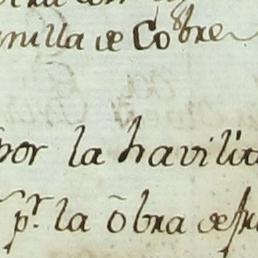 nilla de Cobre
por la havilit
pr. la õbra de